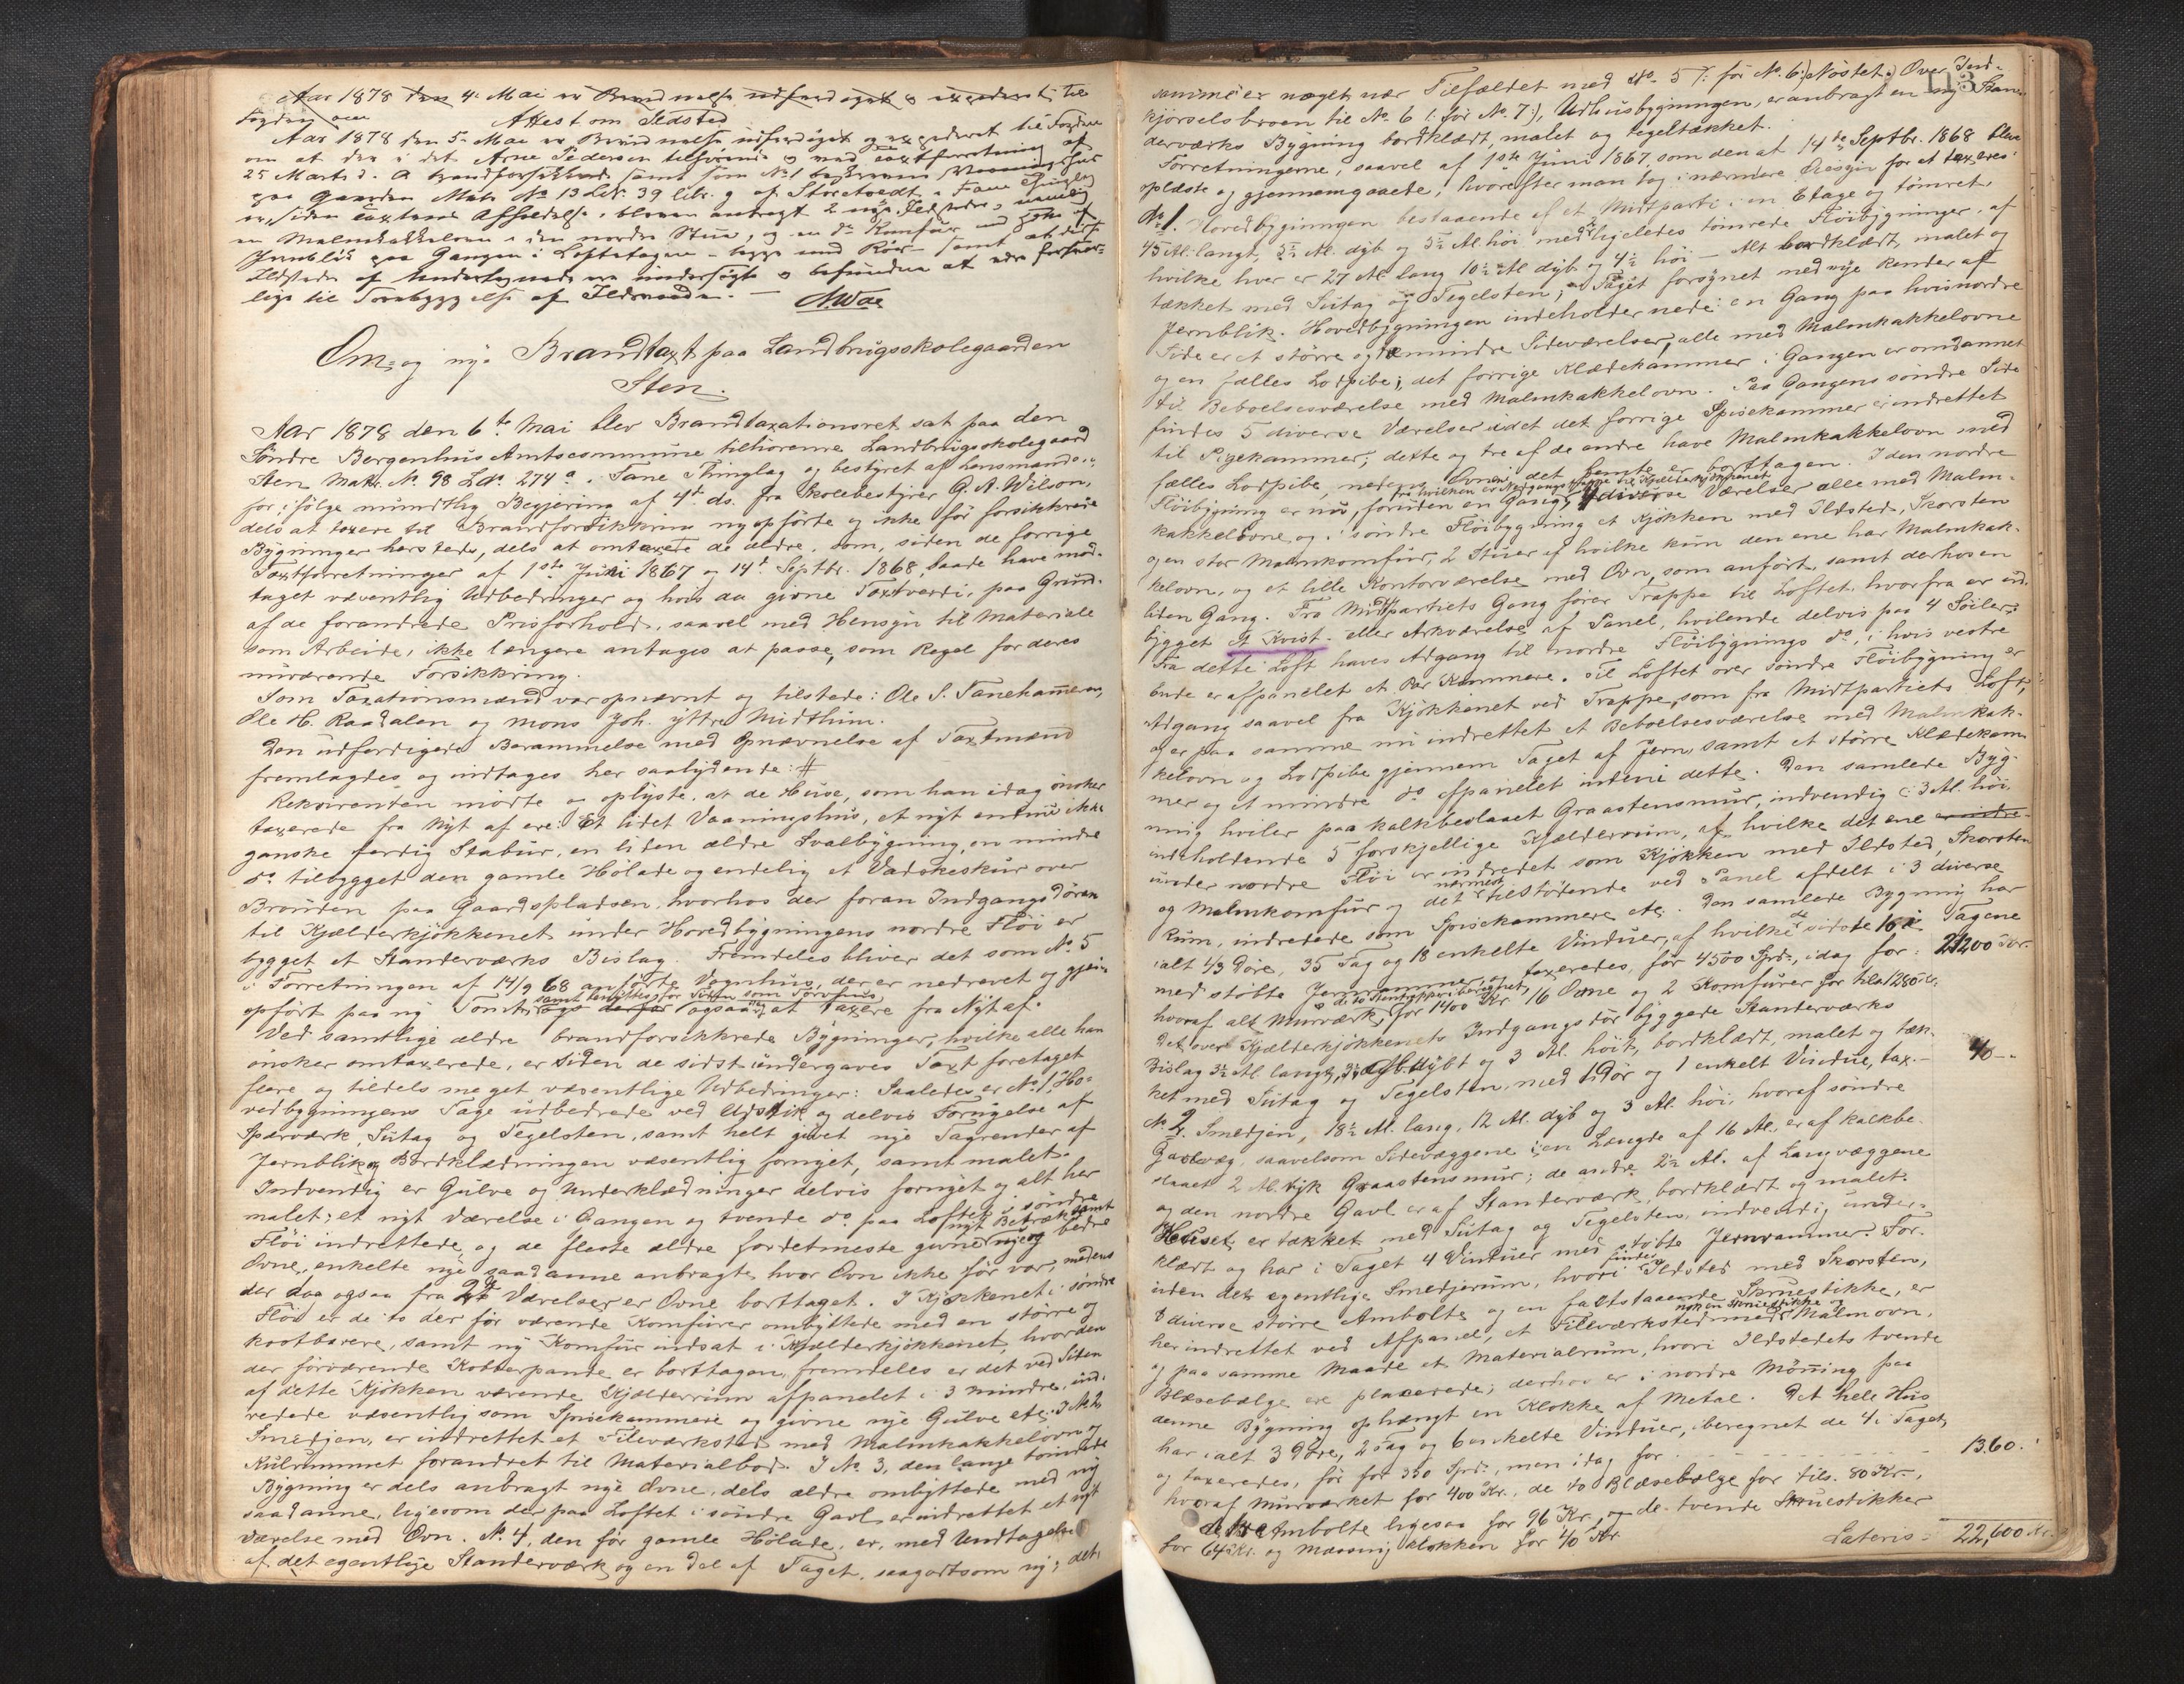 Aar 1878 den 4. Mai er Brandmelse udfærdiget og expederet til
Fogden om
Attest om Ildsted
Aar 1878 den 5. Mai er Brandmelse udfærdiget og expederet til Fogden
om at den i det Arne Pedersen tilhørende og ved Taxtforretning af
25 Marts d. A. brandforsikkrede samt som No 1 beskrevne Vaaningshus
paa Gaarden Matr. No 13 Løb. 39 litr. g af Storetvedt i Fane Thinglag
er, siden Taxtens Afholdelse, bleven anbragt 2 nye Ildsteder, nemlig
en Malmkakkelovn i den nordre Stue, og en do Komfur
Jernblik paa Gangen i Loftsetagen - begge med Rør - samt at disse
Ildsteder af Undertegnede er undersøgte og befundne at være forsvar-
lige til Forebyggelse af Ildsvaade. -
Om- og nye Brandtaxt paa Landbrugsskolegaarden
Sten.
Aar 1878 den 6te Mai blev Brandtaxationsret sat paa den
Søndre Bergenhus Amtscommune tilhørende Landbrugsskolegaard
Sten Matr. No. 98 Ldr. 274 a. i Fane Thinglag og bestyret af Lensmanden
for ifølge mundtlig Begjæring af 4de ds. fra Skolebestyrer G. A. Wilson,
dels at taxere til Brandforsikkring nyopførte og ikke før forsikkrede
Bygninger hersteds, dels at omtaxere de ældre, som, siden de forrige
Taxtforretninger af 1ste Juni 1867 og 14de Septbr. 1868, baade have mod-
taget væsentlig Udbedringer og hvis da givne Taxtværdi, paa Grund
af de forandrede Prisforhold, saavel med Hensyn til Materiale
som Arbeide, ikke længere antages at passe, som Regel for deres
nuværende Forsikkring.
Som Taxationsmænd var opnævnt og tilstede: Ole S. Fanehammeren,
Ole H. Raadalen og Mons Joh. Yttre Midthun.
Den udfærdigede Berammelse med Opnævnelse af Taxtmænd
fremlagdes og indtages her saalydende: #
Rekvirenten mødte og oplyste, at de Huse, som han idag ønsker
taxerede fra Nyt af ere: Et lidet Vaaningshus, et nyt endnu ikke
ganske færdig Stabur, en liden ældre Svalbygning, en mindre
do tilbygget den gamle Hølade og endelig et Vadskeskur over
Brønden paa Gaardspladsen, hvorhos der foran Indgangsdøren
til Kjælderkjøkkenet under Hovedbygningens nordre Fløi er
bygget et Standerværks Bislag. Fremdeles bliver det som No. 5
i Forretningen af 14/9 68 anførte Vognhus, der er nedrevet og gjen-
samt benyttes for Tiden som Torvhus
opført paa ny Tomt, ogsaa at taxere fra Nyt af.
Ved samtlige ældre brandforsikkrede Bygninger, hvilke alle han
ønsker omtaxerede, er siden de sidst undergaves Taxt foretaget
flere og tildels meget væsentlige Udbedringer: Saaledes er No 1, Ho-
vedbygningens Tage udbedrede ved Udskik og delvis Fornyelse af
Sperværk, Sutag og Tegelsten, samt helt givet nye Tagrender af
Jernblik og Bordklædningen væsentlig fornyet, samt malet.
Indvendig er Gulve og Underklædninger delvis fornyet og alt her
malet; et nyt Værelse i Gangen og tvende do paa Loftet i søndre
nyt Betræk samt
Fløi indrettede, og de fleste ældre fordetmeste givne nye og bedre
Ovne, enkelte nye saadanne anbragte, hvor Ovn ikke før var, medens
der dog ogsaa fra 2de Værelser er Ovne borttaget. I Kjøkkenet i søndre
Fløi er de to der før værende Komfurer ombyttede med en større og
kostbarere, samt ny Komfur indsat i Kjælderkjøkkenet, hvor den
der førværende Kogerpande er borttagen, fremdeles er det ved Siden
af dette Kjøkken værende Kjælderrum afpanelet i 3 mindre, ind-
redede væsentlig som Spisekammere og givne nye Gulve etc. I No 2
Smedjen, er indrettet et Fileværksted med Malmkakkelovn og
Kulrummet forandret til Materialbod. I No. 3, den lange tømrede
Bygning er dels anbragt nye Ovne, dels ældre ombyttede med nye
saadanne, ligesom der paa Loftet i søndre Gavl er indrettet et nyt
Værelse med Ovn. No 4, den før gamle Hølade, er, med Undtagelse
af det egentlige Standerværk og en Del af Taget, saagodtsom ny; det
samme er noget nær Tilfældet med No. 5 /: før No. 6:/ Nøstet. Over Ind-
kjørselsbroen til No 6 (: før No. 7:), Udhusbygningen, er anbragt en ny Stan-
derværks Bygning bordklædt, malet og tegeltækket.
Forretningerne, saavel af 1ste Juni 1867, som den af 14de Septbr. 1868 blev
oplæste og gjennemgaaede, hvorefter man tog i nærmere Øiesyn for at taxeres:
No 1. Hovedbygningen bestaaende af et Midtparti i en Etage og tømret,
45 Al. langt, 5½ Al. dyb og 5½ Al. høi med 2 ligeledes tømrede Fløibygninger, af
hvilke hver er 27 Al. lang 10½ Al. dyb og 4½ høi - Alt bordklædt, malet og
tækket med Sutag og Tegelsten; Taget forsynet med nye Render af
Jernblik. Hovedbygningen indeholder nede: en Gang paa hvis nordre
Side er et større og to mindre Sideværelser, alle med Malmkakkelovne
og en fælles Lodpibe; det forrige Klædekammer i Gangen er omdannet
til Beboelsesværelse med Malmkakkelovn. Paa Gangens søndre Side
findes 5 diverse Værelser idet det forrige Spisekammer er indrettet
til Pigekammer; dette og tre af de andre have Malmkakkelovn med
fælles Lodpibe, medens Ovnen i det femte er borttagen. I den nordre
fra hvilken er Nedgangstrappe til Kjælderkjøkkenet
Fløibygning er nu, foruden en Gang, 4 diverse Værelser alle med Malm-
kakkelovne, og i søndre Fløibygning et Kjøkken med Ildsted, Skorsten
og en stor Malmkomfur, 2 Stuer af hvilke kun den ene har Malmkak-
kelovn, og et lille Kontorværelse med Ovn, som anført, samt derhos en
liden Gang. Fra Midtpartiets Gang fører Trappe til Loftet, hvorfra er ud-
bygget et Kvist- eller Arkværelse af Panel, hvilende delvis paa 4 Søiler.
Fra dette Loft haves Adgang til nordre Fløibygnings do, i hvis vestre
Ende er afpanelet et Par Kammere. Til Loftet over søndre Fløibygning er
Adgang saavel fra Kjøkkenet ved Trappe, som fra Midtpartiets Loft,
og er paa samme nu indrettet et Beboelsesværelse med Malmkak-
kelovn og Lodpibe gjennem Taget af Jern, samt et større Klædekam-
mer og et mindre do afpanelet indeni dette. Den samlede Byg-
ning hviler paa kalkbeslaaet Graastensmur, indvendig c: 3 Al. høi.
indeholdende 5 forskjellige Kjælderrum, af hvilke det ene
under nordre Fløi er indredet som Kjøkken med Ildsted, Skorsten
nærmest
og Malmkomfur og det tilstødende ved Panel afdelt i 3 diverse
Rum, indredede som Spisekammere etc. Den samlede Bygning har
ialt 43 Døre, 35 Fag og 18 enkelte Vinduer, af hvilke de sidste 16 i Tagene
med støbte Jernrammer og taxeredes, før 4500 Spd., idag for: 21200 Kr.
hvoraf alt Murværk, for 1400 Kr. 16 Ovne og 2 Komfurer for tils. 1280 Kr.
Det over Kjælderkjøkkenets Indgangsdør byggede Standerværks
Bislag 3½ Al. langt, 3½ Al. dybt og 3 Al. høit, bordklædt, malet og tæk-
ket med Sutag og Tegelsten, med 1 Dør og 1 enkelt Vindue, tax. - 40 -
No 2. Smedjen, 18½ Al. lang, 12 Al. dyb og 3 Al. høi, hvoraf søndre
Gavlvæg, saavelsom Sidevæggene i en Længde af 16 Al., er af kalkbe-
slaaet 2 Al. tyk Graastensmur; de andre 2½ Al. af Langvæggene
og den nordre Gavl er af Standerværk, bordklædt og malet.
Huset er tækket med Sutag og Tegelsten, indvendig under-
klædt og har i Taget 4 Vinduer med støbte Jernrammer. For-
uden det egentlige Smedjerum, hvori findes Ildsted med Skorsten,
3 diverse større Ambolte og en faststaaende Skruestikke, er
nok en Skruestikke og
her indrettet ved Afpanel, et Fileværksted med Malmovn,
og paa samme Maade et Materialrum, hvori Ildstedets tvende
Blæsebælge ere placerede; derhos er i nordre Mønning paa
denne Bygning ophængt en Klokke af Metal. Det hele Hus
har ialt 3 Døre, 2 Fag og 6 enkelte Vinduer, iberegnet de 4 i Taget,
og taxeredes, før for 350 Spd., men idag for - - - 1360.
hvoraf Murværket for 400 Kr., de to Blæsebælge for tils. 80 Kr.,
de tre Ambolte ligesaa for 96 Kr., og de tvende Skruestikker
for 64 Kr. og Messing Klokken for 40 Kr.
Lateris 22,600 Kr.